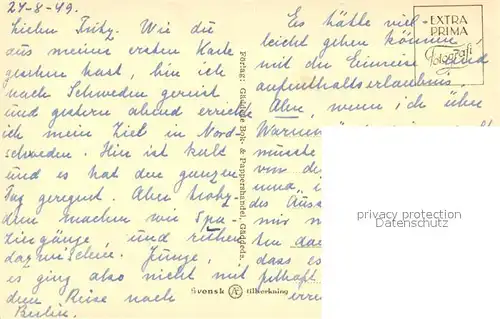 24-8-49.
Lieber Fritz. Wie du
aus meiner ersten Karte
gesehen hast, bin ich
nach Schweden gereist
und gestern abend erreichte
ich mein Ziel in Nord-
schweden. Hier ist kalt
und es hat den ganzen
Tag geregnet. Aber trotz-
dem machen wir Spa-
ziergänge, und rudern
dazwischen. Junge,
es ging also nicht mit
der Reise nach
Berlin.
Förlag: Gäddede Bok- & Pappershandel, Gäddede.
Svensk tillverkning
Es hätte viel-
leicht gehen können,
mit der Einreise und
aufenthaltserlaubnis,
Aber, wenn ich über
Warnem
musste
von de
und "i
des Aus
mir n
ten da
dass es
gehaft
erre
EXTRA
PRIMA
Fotografi
privacy protection
Datenschutz